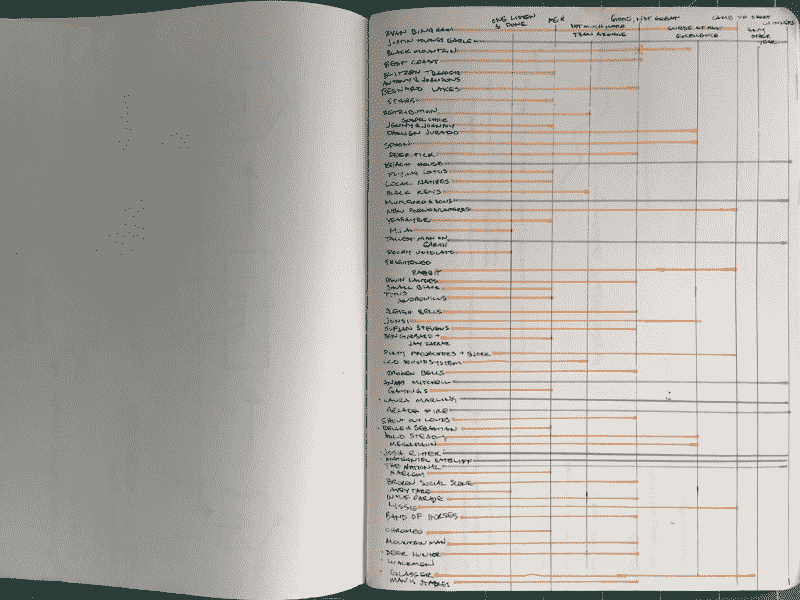 ONE LISTEN & DONE
MEH
NOT MUCH MORE THAN AVERAGE
GOOD, NOT GREAT
EXCELLENCE
CAME TO GREAT
WINNERS
ANY OTHER YEAR
RYAN BINGHAM
JUSTIN TOWNES EARLE
BLACK MOUNTAIN
BEST COAST
BLITZEN TRAPPER
ANTONY & JOHNSONS
BESNARD LAKES
STARS
RETRIBUTION
GOSPEL CHOIR
JENNY & JOHNNY
DAMIEN JURADO
SPOON
DEER TICK
BEACH HOUSE
FLYING LOTUS
LOCAL NATIVES
BLACK KEYS
MUMFORD & SONS
NEW PORNOGRAPHERS
YEASAYER
M.I.A
TALLEST MAN ON
EARTH
ROCKY VOTOLATO
FRIGHTENED
RABBIT
DAWN LANDES
SMALL BLACK
TITUS
ANDRONICUS
SLEIGH BELLS
JONSI
SUFJAN STEVENS
BEN GIBBARD +
JAY FARRAR
DIRTY PROJECTORS + BJORK
LCD SOUNDSYSTEM
BROKEN BELLS
ANAIS MITCHELL
GAYNGS
LAURA MARLING
ARCADE FIRE
SHOUT OUT LOUDS
BELLE & SEBASTIAN
HOLD STEADY
MEGAFAUN
JOSH RITTER
NATHANIEL RATELIFF
THE NATIONAL
BROKEN SOCIAL SCENE
WOLF PARADE
LISSIE
BAND OF HORSES
CHROMEO
MOUNTAIN MAN
DEER HUNTER
WALKMEN
GLASSER
MAVIS STAPLES